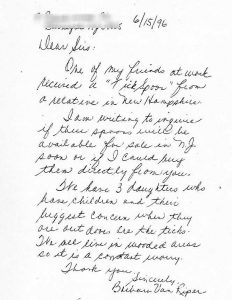 6/15/96
Dear Sirs:
One of my friends at work
received a "Tick Spoon" from
a relative in New Hampshire.
I am writing to inquire
if these spoons will be
available for sale in NJ
soon or if I could buy
them directly from you.
We have 3 daughters who
have children and their
biggest concern when they
are out doors are the ticks.
We all live in wooded areas
so it is a constant worry.
Thank you.
Sincerely,
Barbara Van Riper